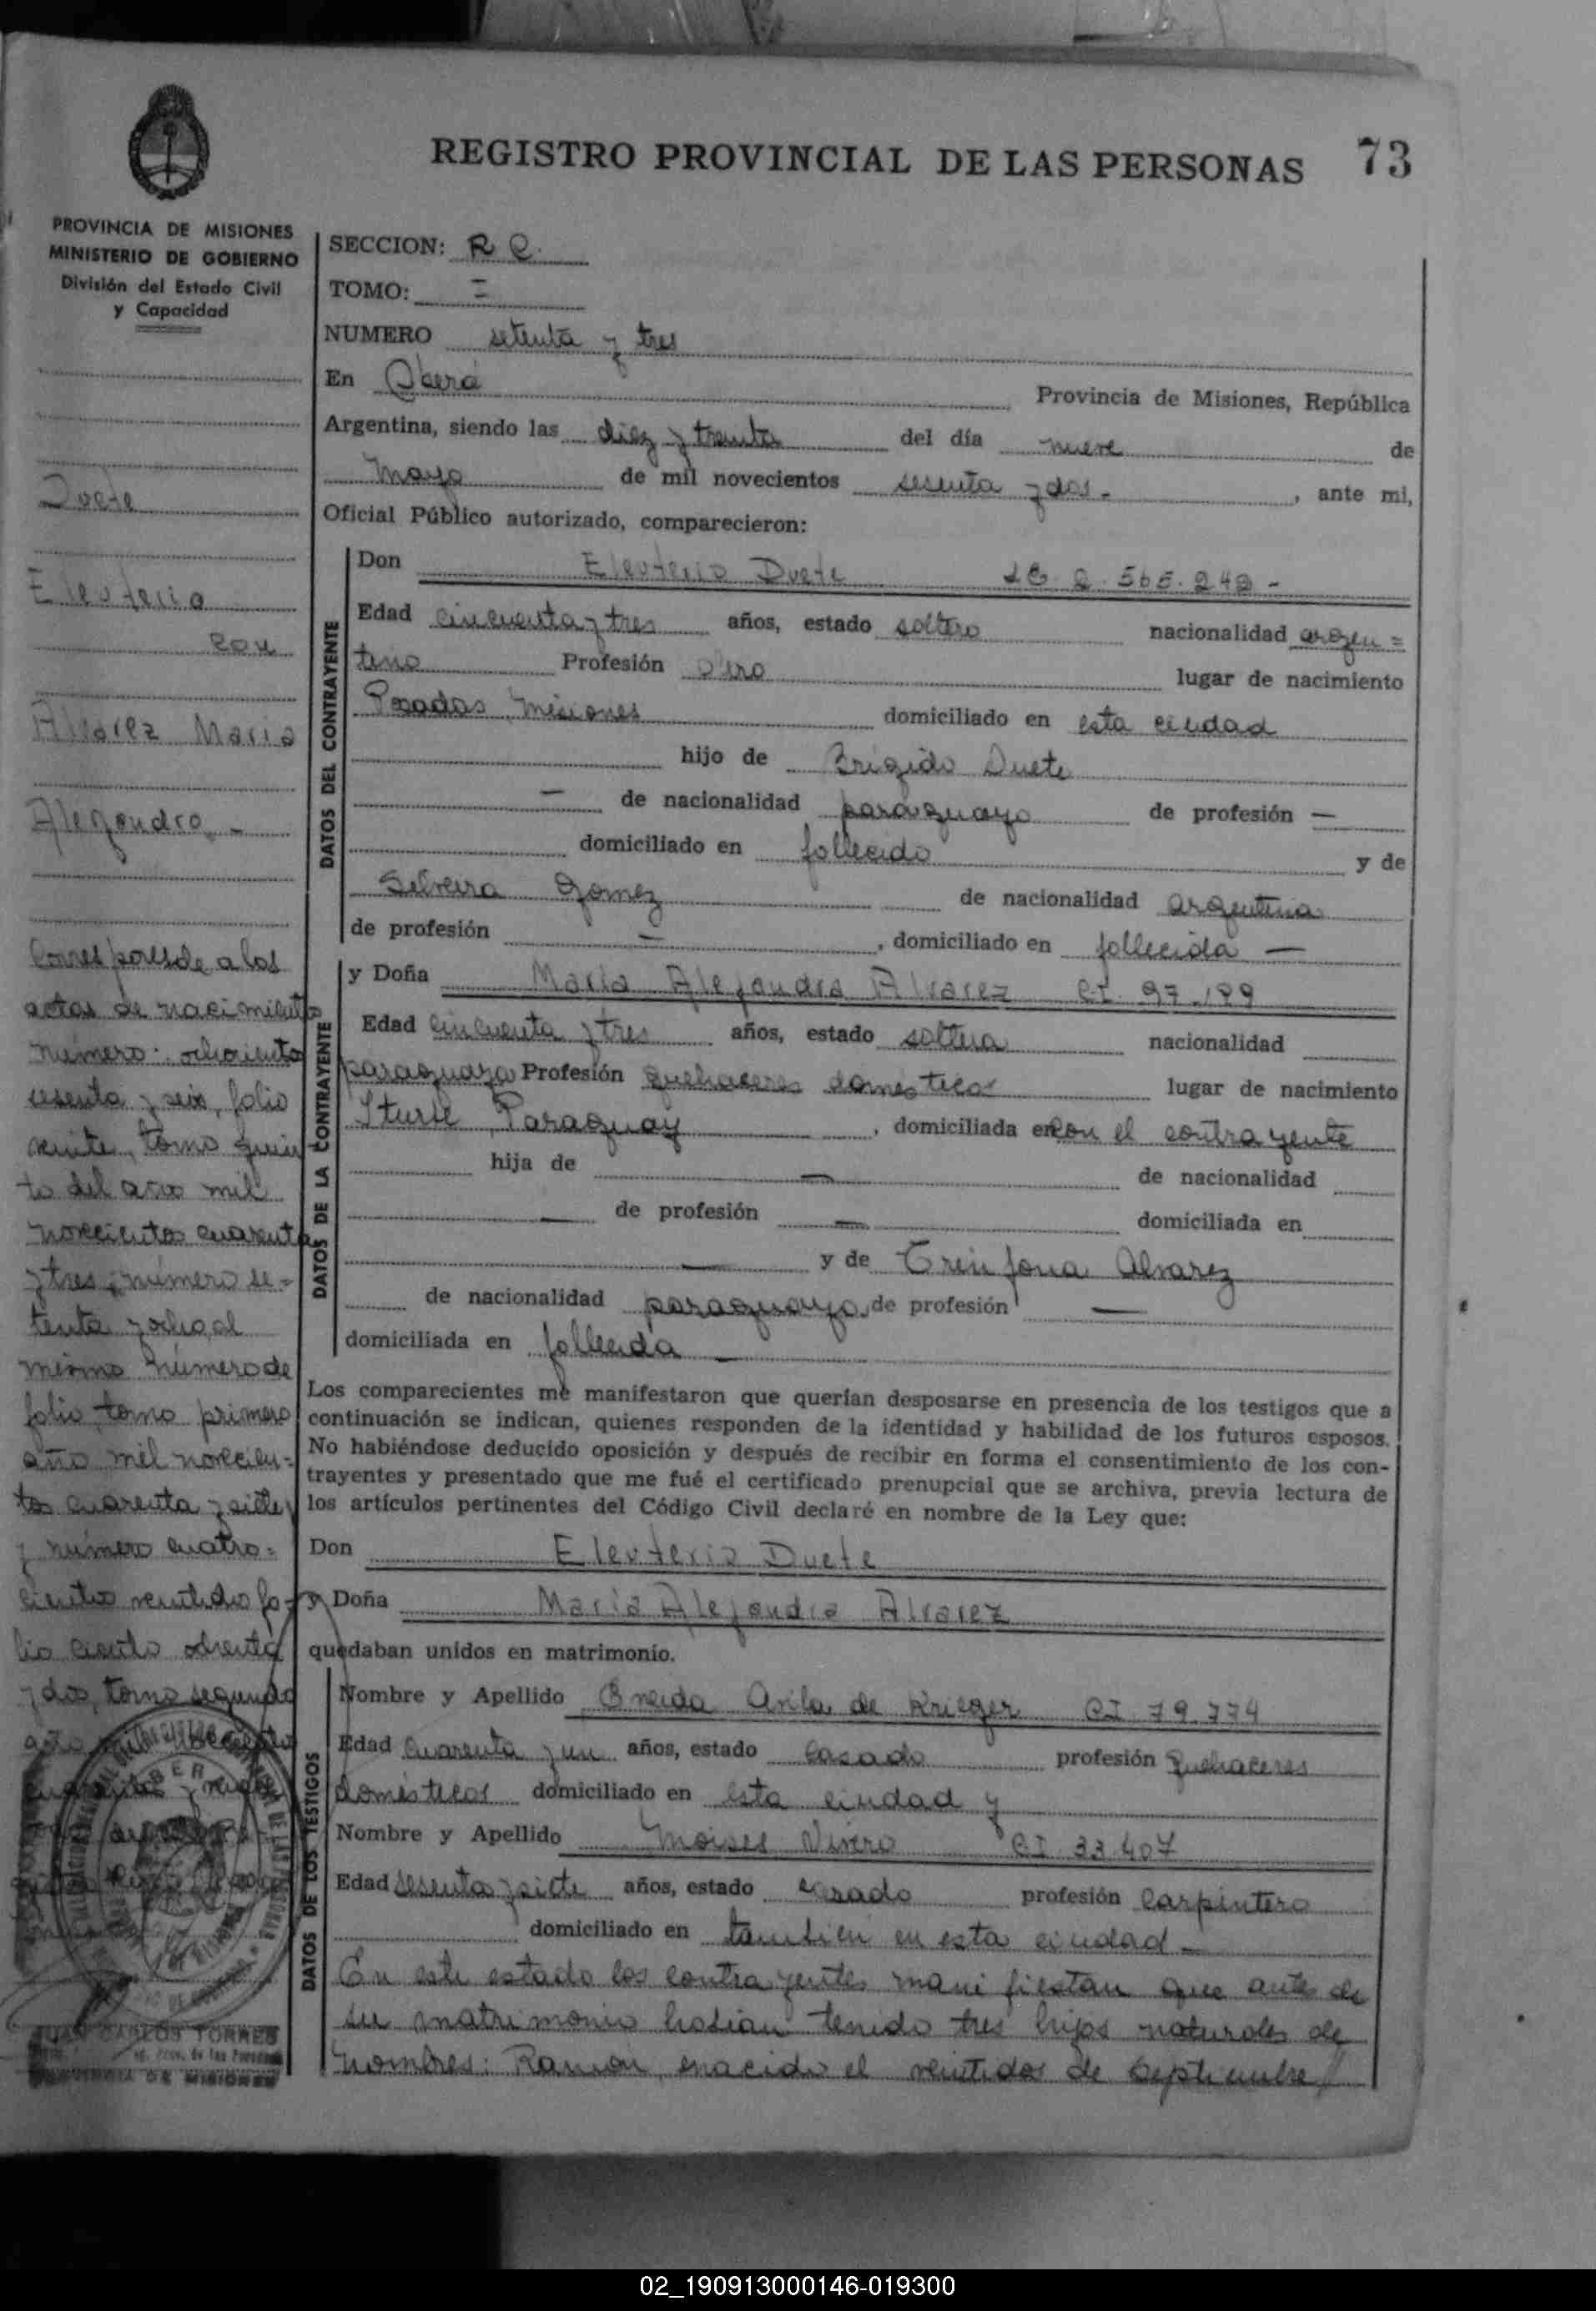 REGISTRO PROVINCIAL DE LAS PERSONAS 73
PROVINCIA DE MISIONES
MINISTERIO DE GOBIERNO
División del Estado Civil
y Capacidad
Duete
Eleuterio
con
Alvarez Maria
Alejandra -
Corresponde a las
actas de nacimiento
número: ochocientos
sesenta y seis, folio
veinte, tomo quin
to del año mil
novecientos cuarenta
y tres; número se=
tenta y ocho al
mismo número de
folio, tomo primero
año mil novecien=
tos cuarenta y siete,
y número cuatro=
cientos veintidos fo-
lio ciento ochenta
y dos, tomo segundo
JUAN CARLOS TORRES
SECCION: R C.
TOMO: =
NUMERO setenta y tres
En Oberá Provincia de Misiones, República
Argentina, siendo las diez y treinta del día nueve de
Mayo de mil novecientos sesenta y dos.- , ante mi,
Oficial Público autorizado, comparecieron:
DATOS DEL CONTRAYENTE
Don Eleuterio Duete 2.565.242 -
Edad cincuenta y tres años, estado soltero nacionalidad argen=
tino Profesión lugar de nacimiento
Posadas, Misiones domiciliado en esta ciudad
hijo de Brigido Duete
— de nacionalidad paraguayo de profesión —
domiciliado en fallecido y de
Silveira Gomez de nacionalidad argentina
de profesión — , domiciliado en fallecida —
DATOS DE LA CONTRAYENTE
y Doña Maria Alejandra Alvarez CI. 97.199
Edad cincuenta y tres años, estado soltera nacionalidad
paraguaya Profesión quehaceres domesticos lugar de nacimiento
Iturbe, Paraguay , domiciliada en con el contrayente
hija de — de nacionalidad
— de profesión — domiciliada en
— y de Alvarez
de nacionalidad paraguaya, de profesión —
domiciliada en fallecida —
Los comparecientes me manifestaron que querían desposarse en presencia de los testigos que a
continuación se indican, quienes responden de la identidad y habilidad de los futuros esposos.
No habiéndose deducido oposición y después de recibir en forma el consentimiento de los con-
trayentes y presentado que me fué el certificado prenupcial que se archiva, previa lectura de
los artículos pertinentes del Código Civil declaré en nombre de la Ley que:
Don Eleuterio Duete
y Doña Maria Alejandra Alvarez
quedaban unidos en matrimonio.
DATOS DE LOS TESTIGOS
Nombre y Apellido Oneida Avila de Krieger CI 79.774
Edad cuarenta y un años, estado casada profesión quehaceres
domésticos domiciliado en esta ciudad y
Nombre y Apellido Moises Vivero CI 33.407
Edad sesenta y siete años, estado casado profesión carpintero
domiciliado en tambien en esta ciudad -
En este estado los contrayentes manifiestan que antes de
su matrimonio habian tenido tres hijos naturales de
nombres: Ramon, nacido el veintidos de septiembre
02_190913000146-019300